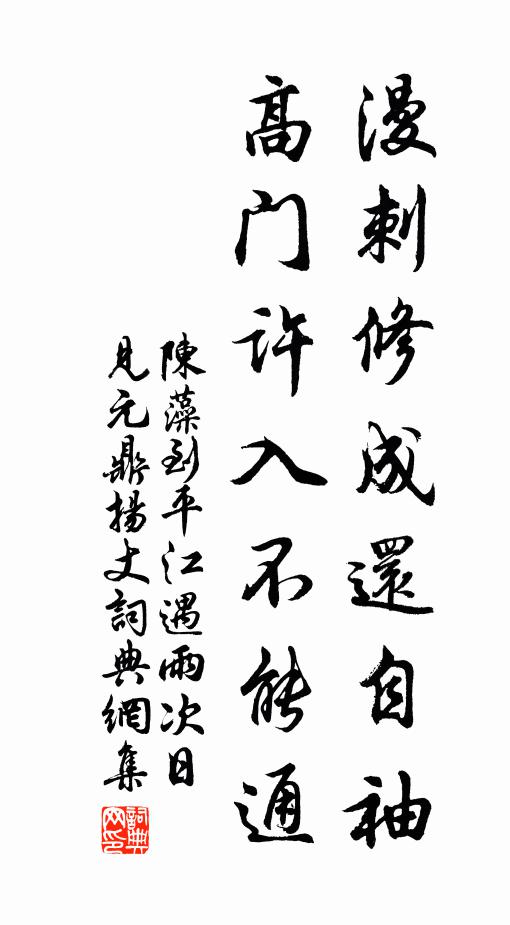 漫刺修成還自袖
高門許入不能通
陳藻到平江遇雨次日
見元鼎揚丈詞典網集
詞典网印